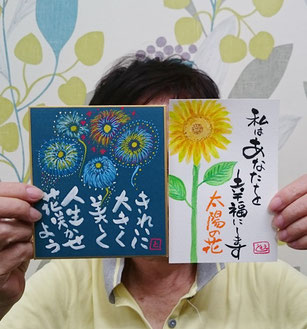 きれいに
大きく
美しく
人生を
花咲かせよう
私はあなたを
幸福にします
太陽の花